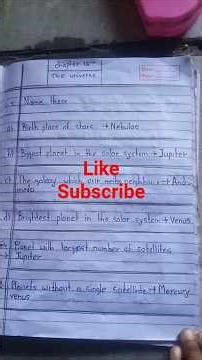 Chapter 15th
The universe
Name these
a) Birth place of stars → Nebulae
b) Biggest planet in the solar system → Jupiter
c) The galaxy which our neighbour → And
romeda
d) Brightest planet in the solar system → Venus
Planet with largest number of satellites
→ Jupiter
Planets without a single satellite → Mercury
venus
Like
Subscribe